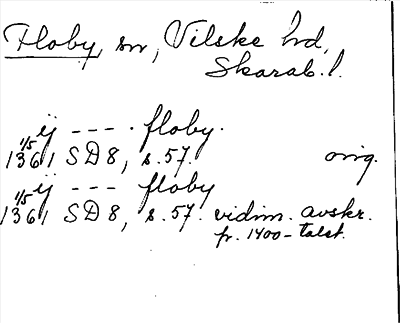 Floby, sn, Vilske hd,
Skarab. l.
ij - - - . floby.
1/5 1361 SD 8, s. 57. orig.
ij - - - floby
1/5 1361 SD 8, s. 57. vidim. avskr.
fr. 1400-talet.